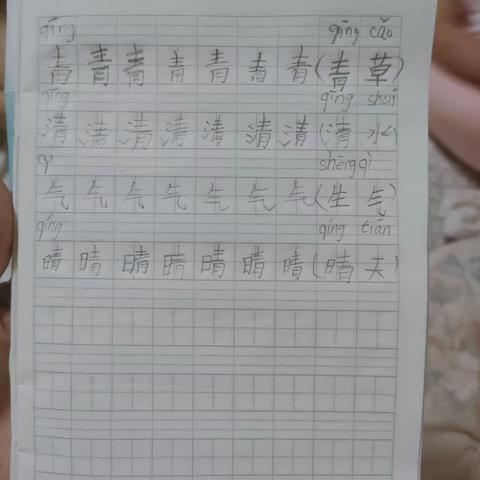 qīng qīng cǎo
青青青青青青青(青草)
qīng qīng shuǐ
清清清清清清清(清水)
qì shēng qì
气气气气气气气(生气)
qíng qíng tiān
晴晴晴晴晴晴晴(晴天)